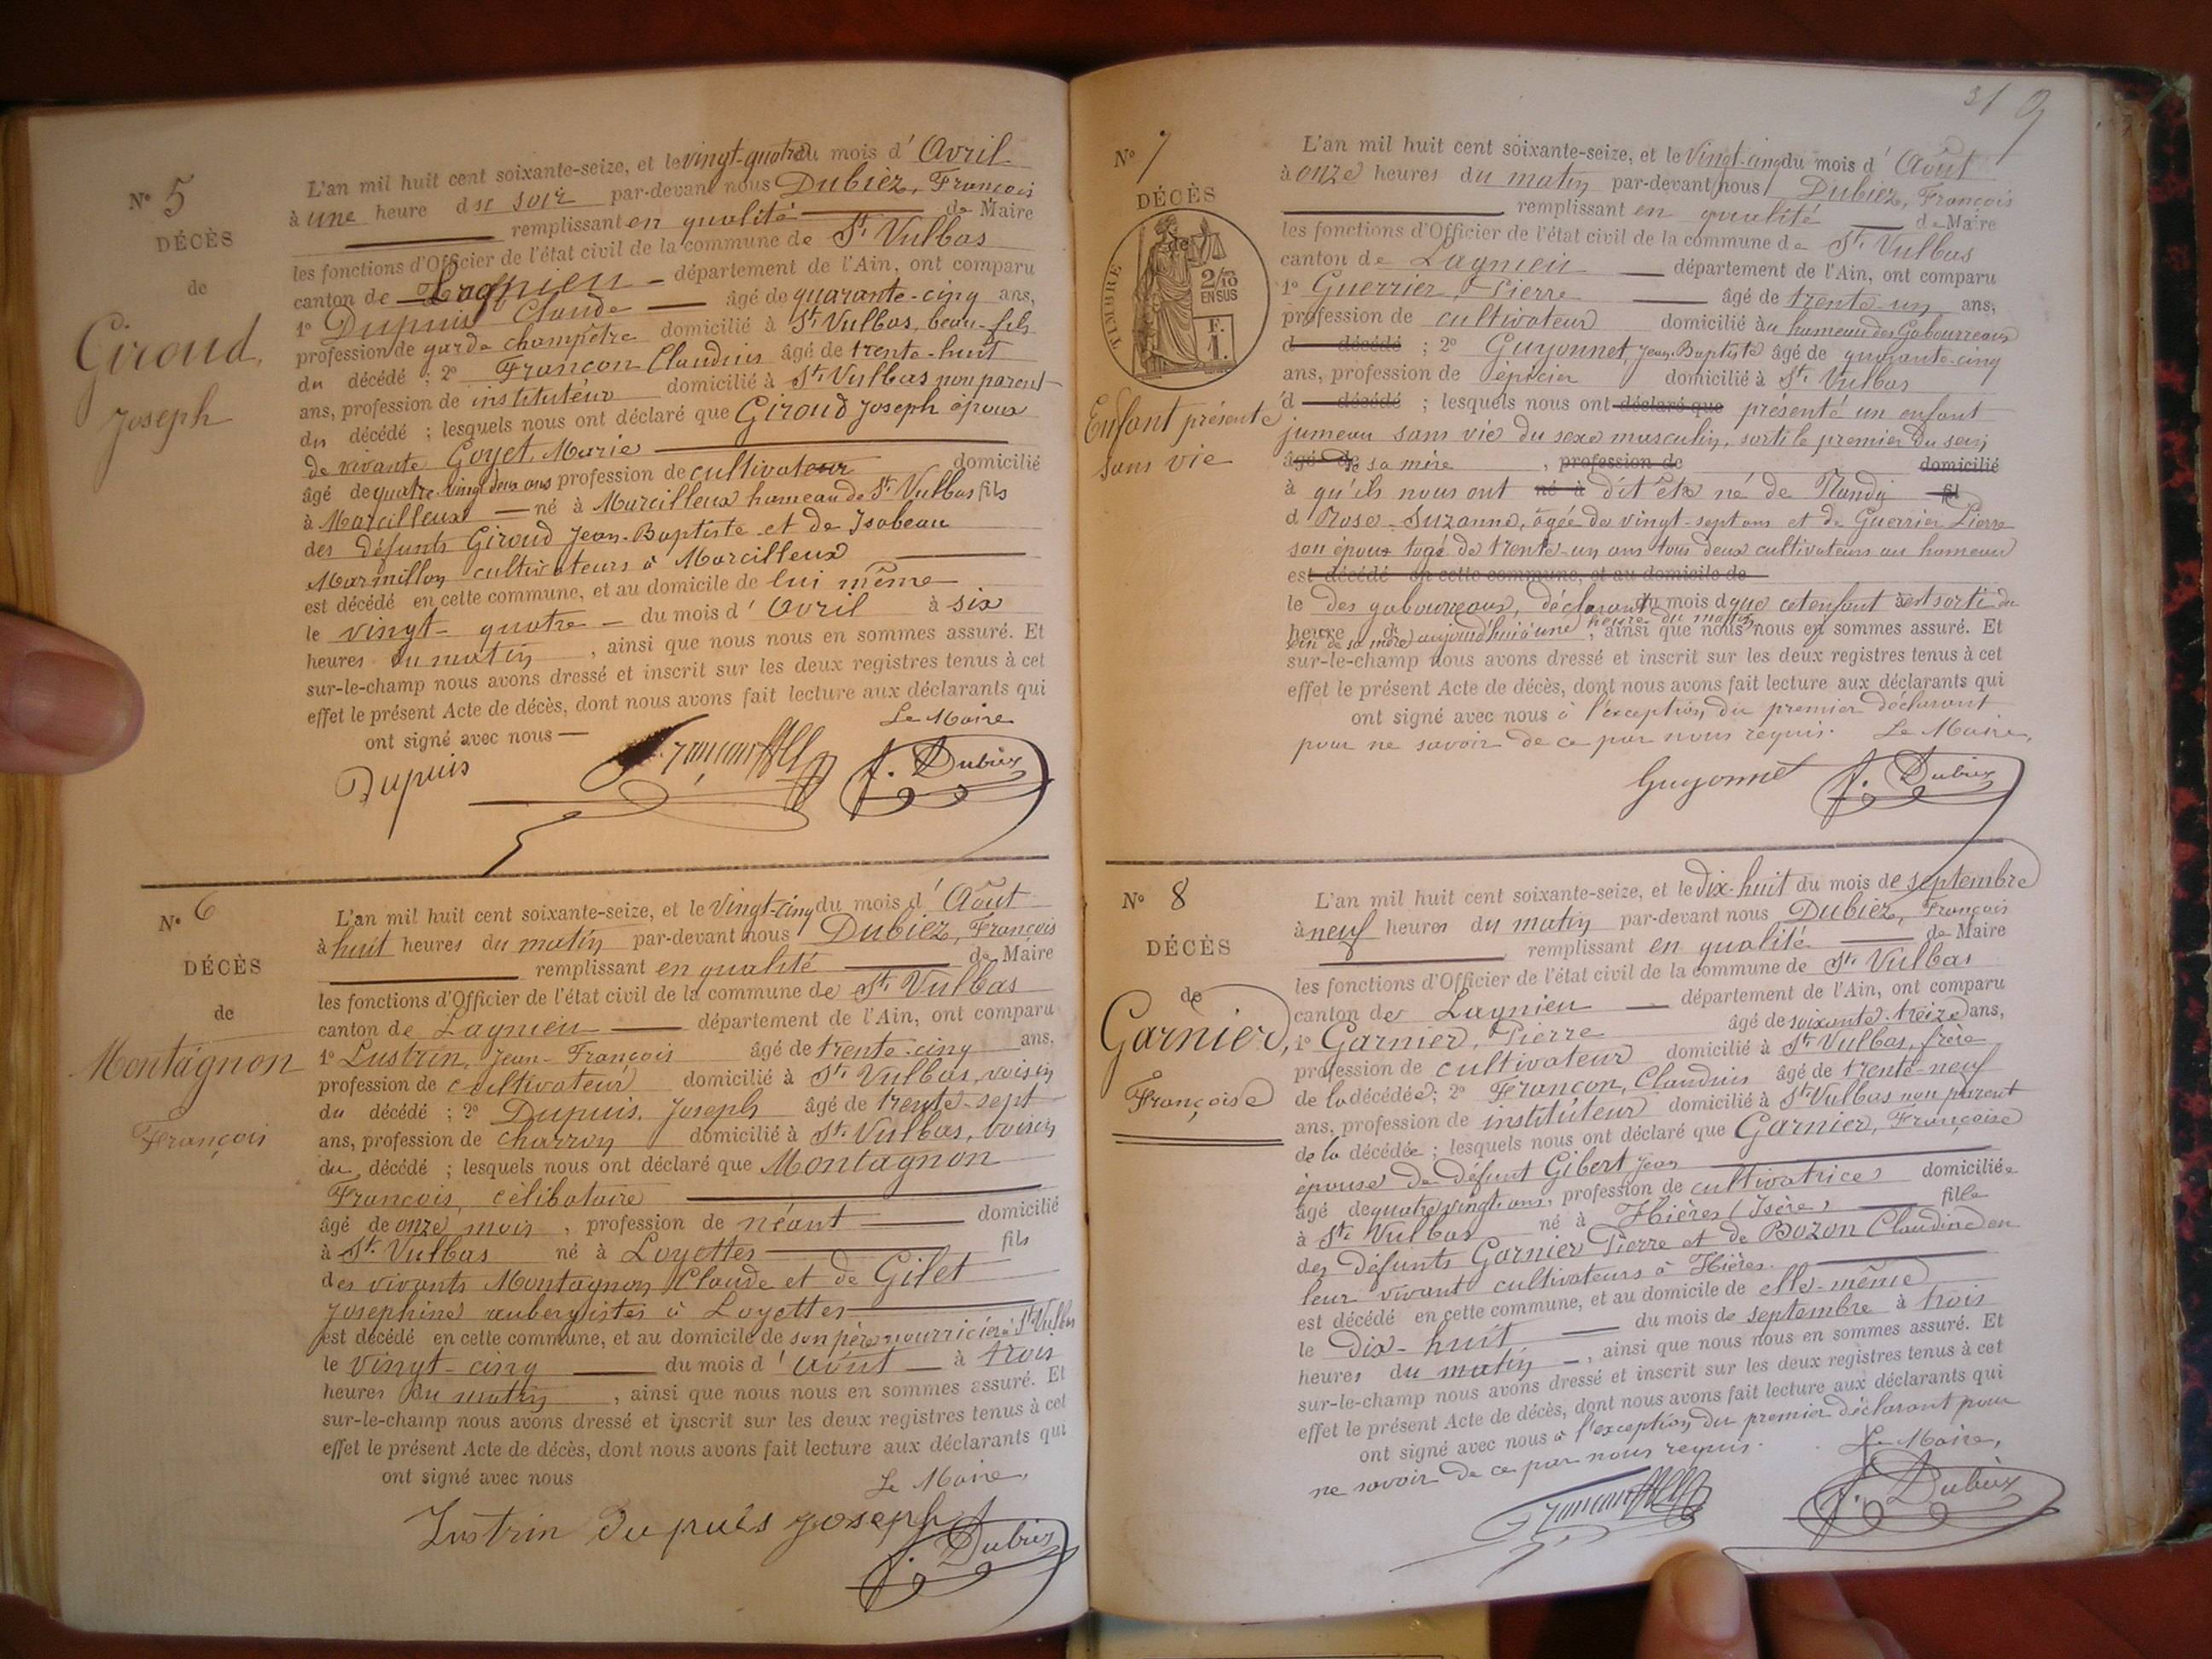 N° 5
DÉCÈS
de
Giroud,
Joseph
L'an mil huit cent soixante-seize, et le vingt-quatre du mois d'Avril
à une heure du soir par-devant nous Dubiez, François
remplissant en qualité de Maire
les fonctions d'Officier de l'état civil de la commune de St. Vulbas
canton de Lagnieu département de l'Ain, ont comparu
1° Dupuis Claude âgé de quarante-cinq ans,
profession de garde champêtre domicilié à St. Vulbas, beau-fils
du décédé ; 2° Françon Claudius âgé de trente-huit
ans, profession de instituteur domicilié à St. Vulbas non parent
du décédé ; lesquels nous ont déclaré que Giroud Joseph époux
de vivante Goyet, Marie
âgé de quatre-vingt deux ans profession de cultivateur domicilié
à Marcilleux né à Marcilleux hameau de St. Vulbas fils
des défunts Giroud Jean-Baptiste et de Isabeau
Marmillon cultivateurs à Marcilleux
est décédé en cette commune, et au domicile de lui même
le vingt-quatre du mois d'Avril à six
heures du matin, ainsi que nous nous en sommes assuré. Et
sur-le-champ nous avons dressé et inscrit sur les deux registres tenus à cet
effet le présent Acte de décès, dont nous avons fait lecture aux déclarants qui
ont signé avec nous
Le Maire
Dupuis
F. Dubiez
N° 6
DÉCÈS
de
Montagnon
François
L'an mil huit cent soixante-seize, et le vingt-cinq du mois d'Août
à huit heures du matin par-devant nous Dubiez, François
remplissant en qualité de Maire
les fonctions d'Officier de l'état civil de la commune de St. Vulbas
canton de Lagnieu département de l'Ain, ont comparu
1° Lustrin, Jean-François âgé de trente-cinq ans,
profession de cultivateur domicilié à St. Vulbas, voisin
du décédé ; 2° Dupuis, Joseph âgé de trente-sept
ans, profession de charron domicilié à St. Vulbas, voisin
du décédé ; lesquels nous ont déclaré que Montagnon
François, célibataire
âgé de onze mois, profession de néant domicilié
à St. Vulbas né à Loyettes fils
des vivants Montagnon Claude et de Gilet
Josephine aubergistes à Loyettes
est décédé en cette commune, et au domicile de son père nourricier à St. Vulbas
le vingt-cinq du mois d'Août à trois
heures du matin, ainsi que nous nous en sommes assuré. Et
sur-le-champ nous avons dressé et inscrit sur les deux registres tenus à cet
effet le présent Acte de décès, dont nous avons fait lecture aux déclarants qui
ont signé avec nous
Le Maire,
Lustrin Dupuis joseph
F. Dubiez
31 9
N° 7
DÉCÈS
de
TIMBRE
2/10
EN SUS
F.
1.
Enfant présenté
sans vie
L'an mil huit cent soixante-seize, et le Vingt-cinq du mois d'Août
à onze heures du matin par-devant nous Dubiez, François
remplissant en qualité de Maire
les fonctions d'Officier de l'état civil de la commune de St. Vulbas
canton de Lagnieu département de l'Ain, ont comparu
1° Guerrier, Pierre âgé de trente-un ans,
profession de cultivateur domicilié au hameau des Gabourreaux
d décédé ; 2° Guyonnet, Jean-Baptiste âgé de quarante-cinq
ans, profession de épicier domicilié à St. Vulbas
d décédé ; lesquels nous ont déclaré que présenté un enfant
jumeau sans vie du sexe masculin, sorti le premier du sein
âgé de sa mère, profession de domicilié
à qu'ils nous ont né à dit être né de Nandy fil
d Rose-Suzanne, âgée de vingt-sept ans et de Guerrier Pierre
son époux âgé de trente-un ans tous deux cultivateurs au hameau
est décédé en cette commune, et au domicile de
le des gabourreaux, déclarant du mois d que cet enfant est sorti du
heure de
sein de sa mère aujourd'hui à une heure du matin, ainsi que nous nous en sommes assuré. Et
sur-le-champ nous avons dressé et inscrit sur les deux registres tenus à cet
effet le présent Acte de décès, dont nous avons fait lecture aux déclarants qui
ont signé avec nous à l'exception du premier déclarant
pour ne savoir de ce par nous requis. Le Maire,
Guyonnet F. Dubiez
N° 8
DÉCÈS
de
Garnier,
Françoise
L'an mil huit cent soixante-seize, et le Dix-huit du mois de septembre
à neuf heures du matin par-devant nous Dubiez, François
remplissant en qualité de Maire
les fonctions d'Officier de l'état civil de la commune de St. Vulbas
canton de Lagnieu département de l'Ain, ont comparu
1° Garnier, Pierre âgé de soixante-treize ans,
profession de cultivateur domicilié à St. Vulbas, frère
de la décédée ; 2° Françon, Claudius âgé de trente-neuf
ans, profession de instituteur domicilié à St. Vulbas non parent
de la décédée ; lesquels nous ont déclaré que Garnier, Françoise
épouse de défunt Gibert Jean
âgé de quatre vingt ans, profession de cultivatrice domiciliée
à St. Vulbas né à Hières (Isère) fille
des défunts Garnier Pierre et de Bozon Claudine en
leur vivant cultivateurs à Hières.
est décédé en cette commune, et au domicile de elle-même
le Dix-huit du mois de septembre à trois
heures du matin, ainsi que nous nous en sommes assuré. Et
sur-le-champ nous avons dressé et inscrit sur les deux registres tenus à cet
effet le présent Acte de décès, dont nous avons fait lecture aux déclarants qui
ont signé avec nous à l'exception du premier déclarant pour
ne savoir de ce par nous requis.
Le Maire,
F. Dubiez